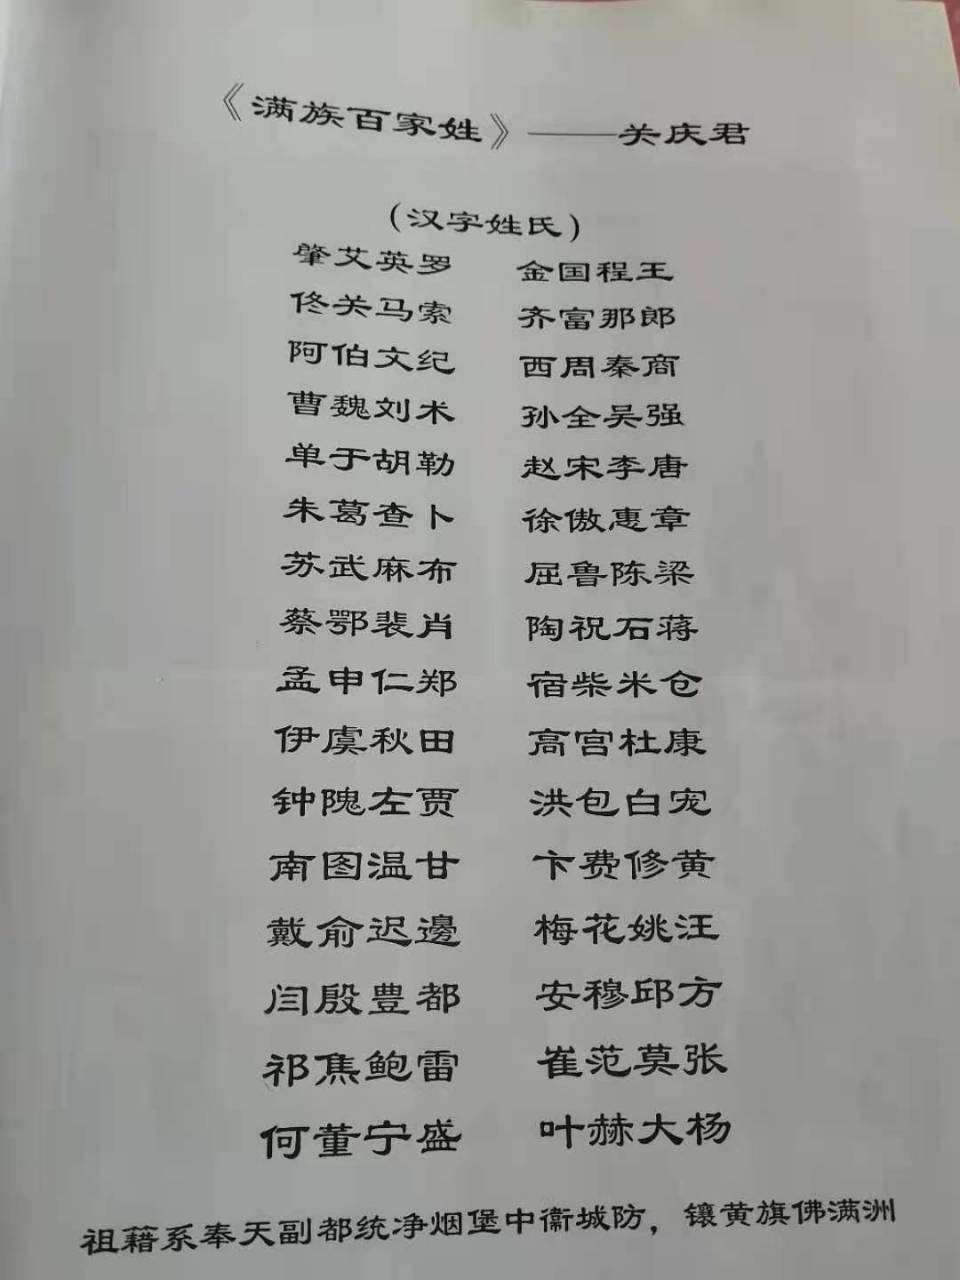 《满族百家姓》——关庆君
(汉字姓氏)
肇艾英罗 金国程王
佟关马索 齐富那郎
阿伯文纪 西周秦商
曹魏刘术 孙全吴强
单于胡勒 赵宋李唐
朱葛查卜 徐傲惠章
苏武麻布 屈鲁陈梁
蔡鄂裴肖 陶祝石蒋
孟申仁郑 宿柴米仓
伊虞秋田 高宫杜康
钟隗左贾 洪包白宠
南图温甘 卞费修黄
戴俞迟邊 梅花姚汪
闫殷豊都 安穆邱方
祁焦鲍雷 崔范莫张
何董宁盛 叶赫大杨
祖籍系奉天副都统净烟堡中衞城防，镶黄旗佛满洲